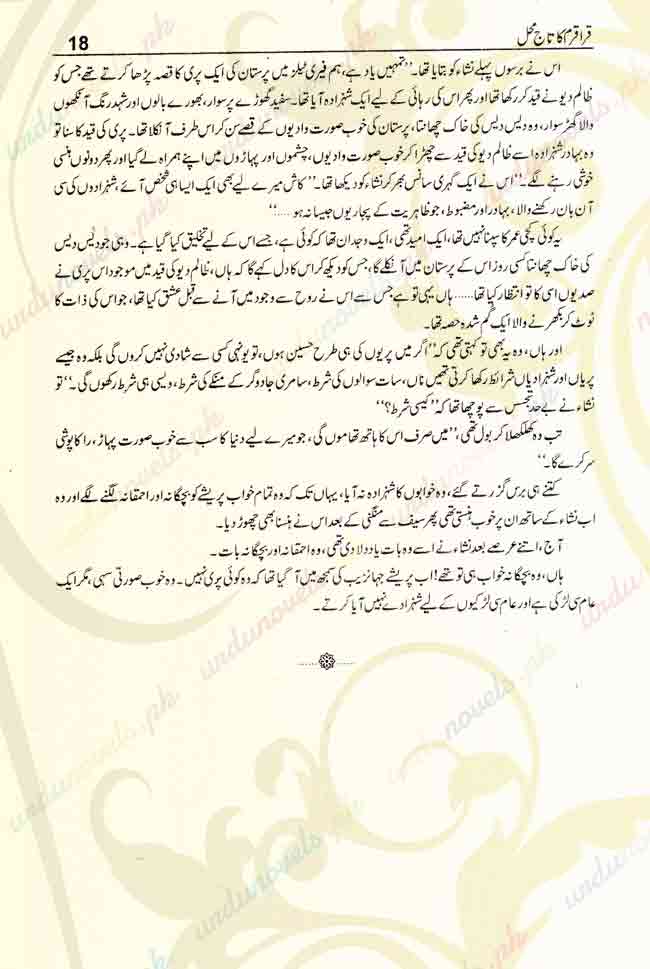 قراقرم کا تاج محل
18
اس نے برسوں پہلے نشاء کو بتایا تھا۔ ’’تمہیں یاد ہے، ہم فیری ٹیلز میں پرستان کی ایک پری کا قصہ پڑھا کرتے تھے جس کو
ظالم دیو نے قید کر رکھا تھا اور پھر اس کی رہائی کے لیے ایک شہزادہ آیا تھا۔ سفید گھوڑے پر سوار، بھورے بالوں اور شہد رنگ آنکھوں
والا گھڑ سوار، وہ دیس دیس کی خاک چھانتا، پرستان کی خوب صورت وادیوں کے قصے سن کر اس طرف آ نکلا تھا۔ پری کی قید کا سنا تو
وہ بہادر شہزادہ اسے ظالم دیو کی قید سے چھڑا کر خوب صورت وادیوں، چشموں اور پہاڑوں میں اپنے ہمراہ لے گیا اور پھر دونوں ہنسی
خوشی رہنے لگے۔‘‘ اس نے ایک گہری سانس بھر کر نشاء کو دیکھا تھا۔ ’’کاش میرے لیے بھی ایک ایسا ہی شخص آئے، شہزادوں کی سی
آن بان رکھنے والا، بہادر اور مضبوط، جو ظاہریت کے پجاریوں جیسا نہ ہو .....‘‘
یہ کوئی کچی عمر کا سپنا نہیں تھا، ایک امید تھی، ایک وجدان تھا کہ کوئی ہے، جسے اس کے لیے تخلیق کیا گیا ہے۔ وہی جو دیس دیس
کی خاک چھانتا کسی روز اس کے پرستان میں آ نکلے گا، جس کو دیکھ کر اس کا دل کہے گا کہ ہاں، ظالم دیو کی قید میں موجود اس پری نے
صدیوں اسی کا تو انتظار کیا تھا...... ہاں یہی تو ہے جس سے اس نے روح سے وجود میں آنے سے قبل عشق کیا تھا، جو اس کی ذات کا
ٹوٹ کر بکھرنے والا ایک گم شدہ حصہ تھا۔
اور ہاں، وہ یہ بھی تو کہتی تھی کہ ’’اگر میں پریوں کی ہی طرح حسین ہوں، تو یونہی کسی سے شادی نہیں کروں گی بلکہ وہ جیسے
پریاں اور شہزادیاں شرائط رکھا کرتی تھیں ناں، سات سوالوں کی شرط، سامری جادوگر کے منکے کی شرط، ویسی ہی شرط رکھوں گی۔‘‘ تو
نشاء نے بے حد تجسس سے پوچھا تھا کہ ’’کیسی شرط؟‘‘
تب وہ کھلکھلا کر بولی تھی، ’’میں صرف اس کا ہاتھ تھاموں گی، جو میرے لیے دنیا کا سب سے خوب صورت پہاڑ، راکاپوشی
سر کرے گا۔‘‘
کتنے ہی برس گزرتے گئے، وہ خوابوں کا شہزادہ نہ آیا، یہاں تک کہ وہ تمام خواب پریشے کو بچگانہ اور احمقانہ لگنے لگے اور وہ
اب نشاء کے ساتھ ان پر خوب ہنستی تھی پھر سیف سے منگنی کے بعد اس نے ہنسنا بھی چھوڑ دیا۔
آج، اتنے عرصے بعد نشاء نے اسے وہ بات یاد دلا دی تھی، وہ احمقانہ اور بچگانہ بات۔
ہاں، وہ بچگانہ خواب ہی تو تھے! اب پریشے جہانزیب کی سمجھ میں آ گیا تھا کہ وہ کوئی پری نہیں۔ وہ خوب صورتی سہی، مگر ایک
عام سی لڑکی ہے اور عام سی لڑکیوں کے لیے شہزادے نہیں آیا کرتے۔
urdunovels.pk